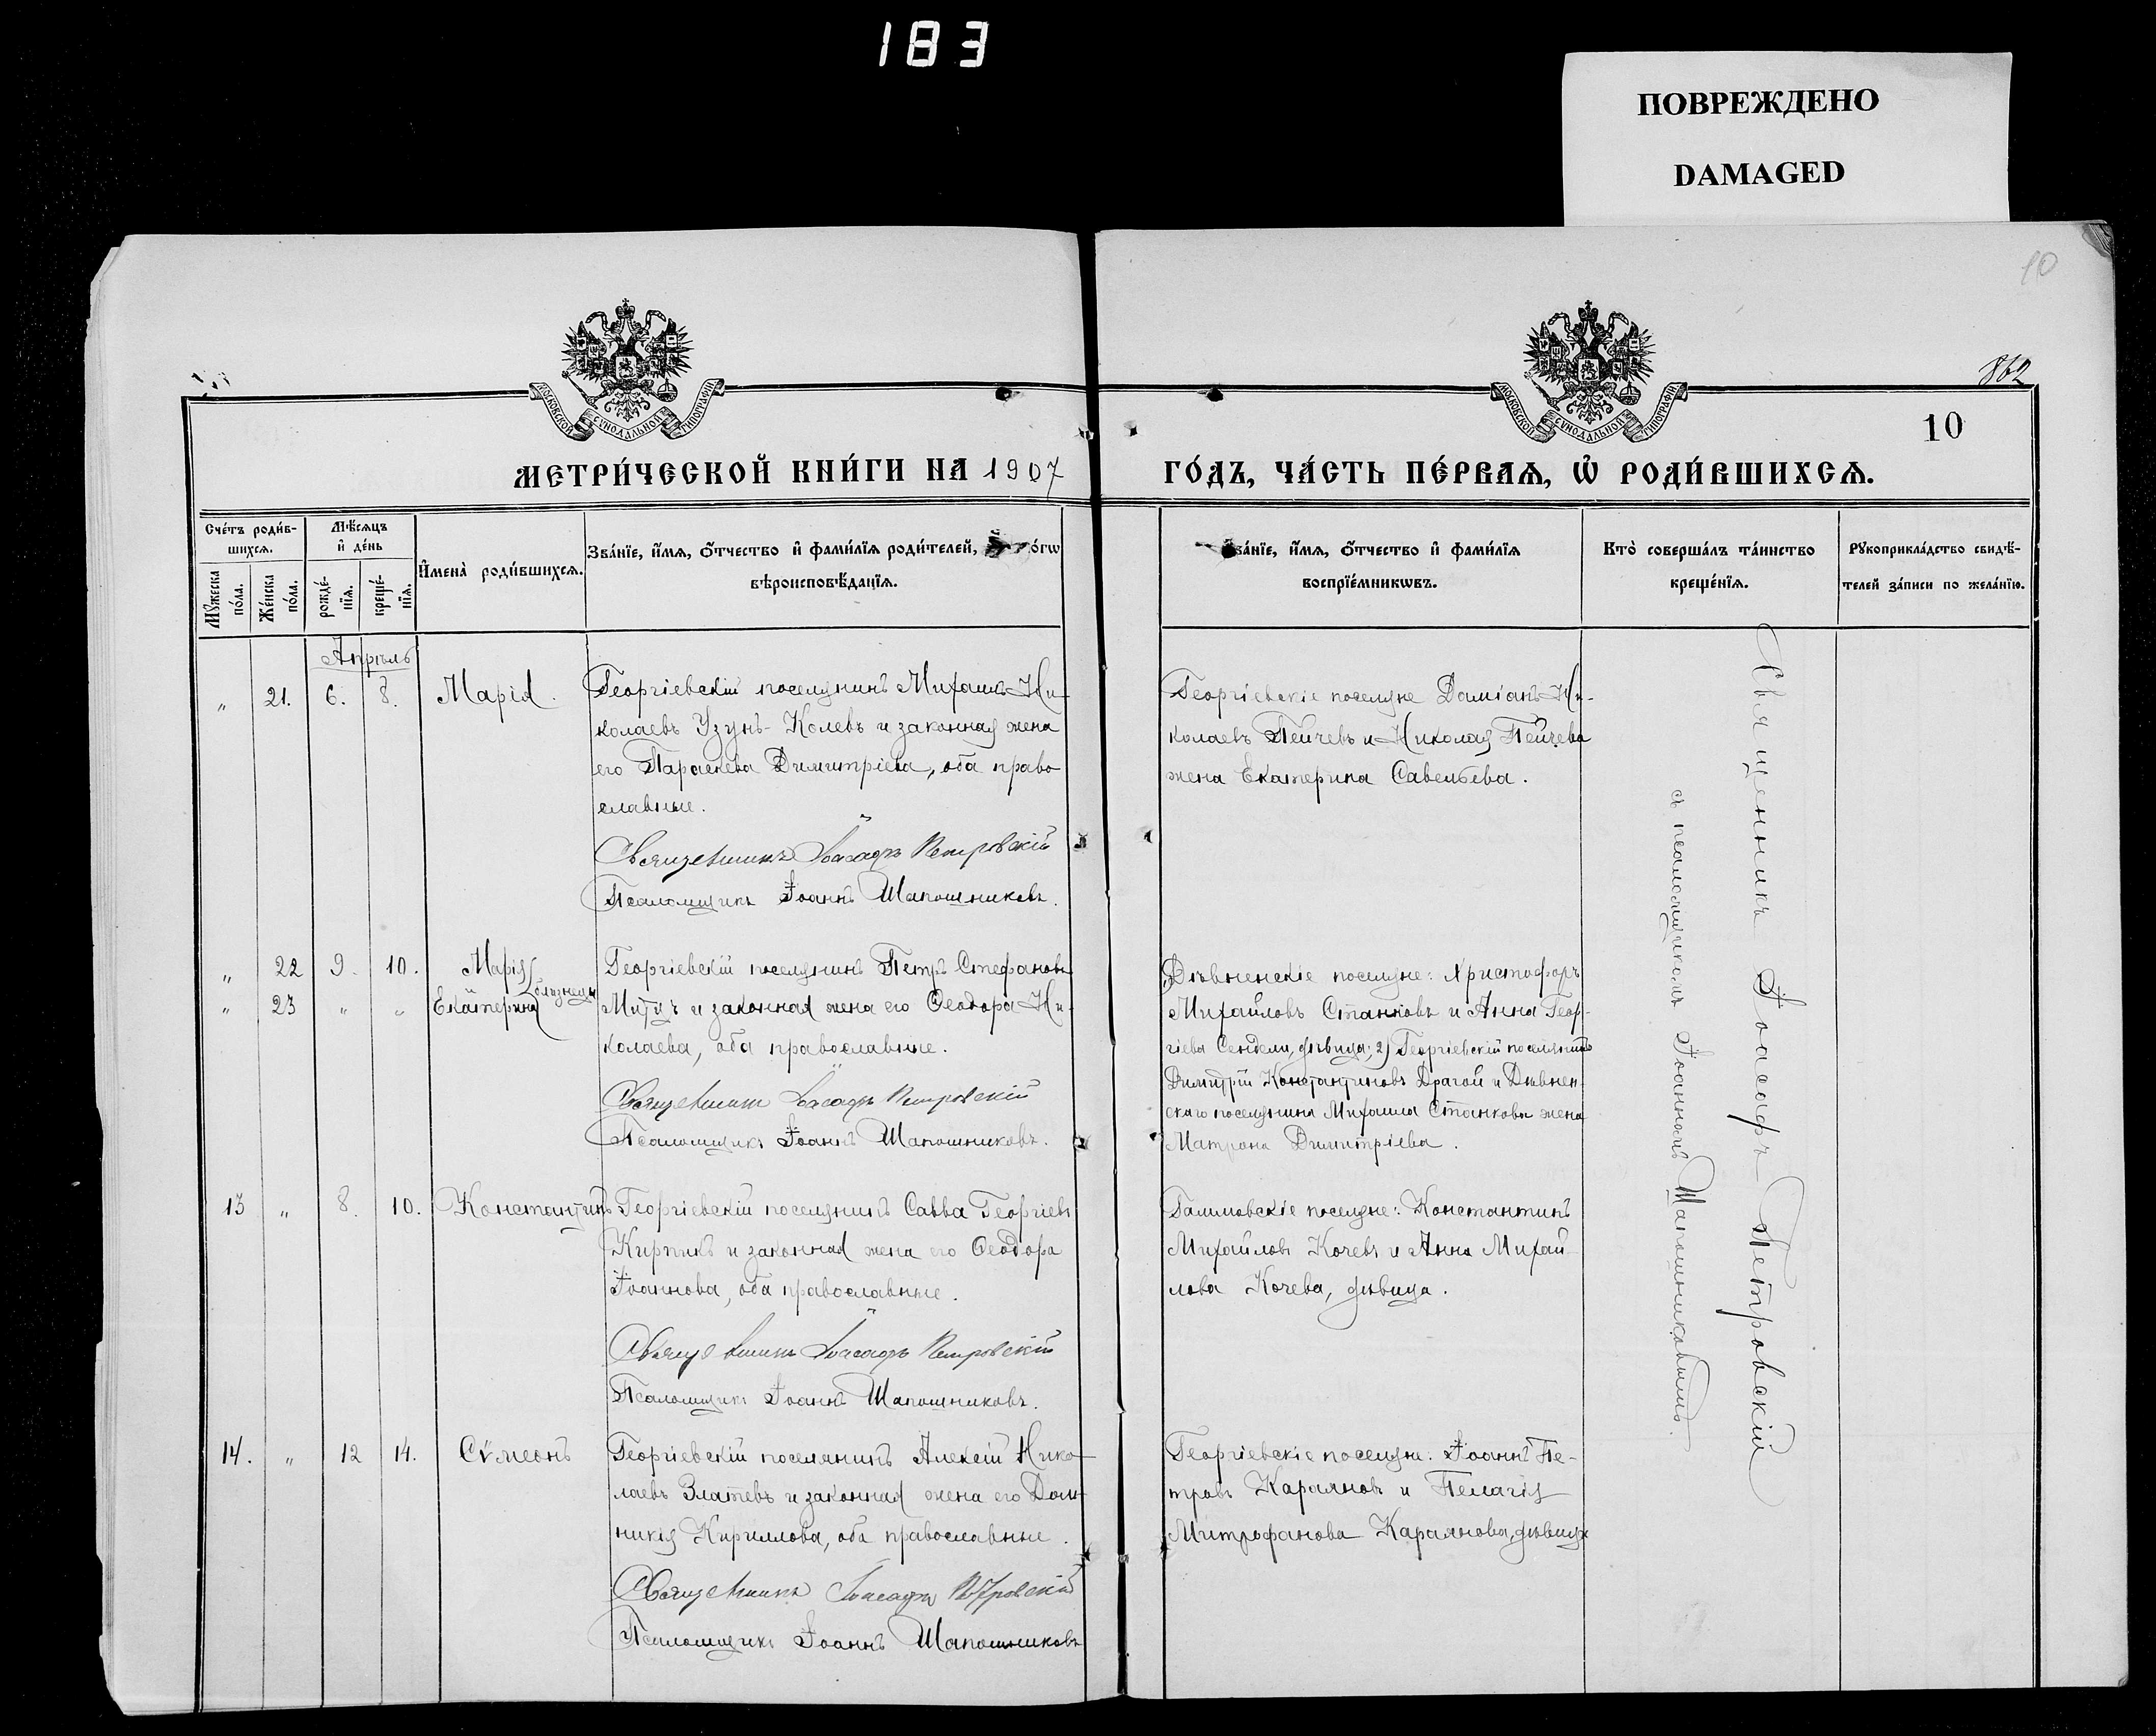 183
ПОВРЕЖДЕНО
DAMAGED
10
862
МОСКОВСКОЙ СѴНОДАЛЬНОЙ ТИПОГРАФІИ
МОСКОВСКОЙ СѴНОДАЛЬНОЙ ТИПОГРАФІИ
10
МЕТРИ́ЧЕСКОЙ КНИ́ГИ НА 1907
ГО́ДЪ, ЧА́СТЬ ПЕ́РВАѦ, Ѡ҆ РОДИ́ВШИХСѦ.
Сче́тъ роди́в-
шихсѧ.
Мѣ́сѧцъ
и҆ де́нь
Мꙋ́жеска
по́ла.
Же́нска
по́ла.
рожде́-
нїѧ.
креще́-
нїѧ.
И҆мена̀ роди́вшихсѧ.
Зва́нїе, и҆́мѧ, ѻ҆́тчество и҆ фами́лїѧ роди́телей,
вѣроисповѣ́данїѧ.
зва́нїе, и҆́мѧ, ѻ҆́тчество и҆ фами́лїѧ
воспрїе́мникѡвъ.
Кто̀ соверша́лъ та́инство
креще́нїѧ.
Рꙋкоприкла́дство свидѣ́-
телей за́писи по жела́нїю.
Апрѣль
„ 21. 6. 8. Марія.
Георгіевскій поселянинъ Михаилъ Ни-
колаевъ Узунъ-Колевъ и законная жена
его Параскева Димитріева, оба право
славные.
Священникъ Іоасафъ Петровскій
Псаломщикъ Іоаннъ Шапошниковъ.
Георгіевскіе поселяне Даміанъ Ни-
колаевъ Пейчевъ и Николая Пейчева
жена Екатерина Савельева.
„ 22 9. 10. Марія
„ 23 „ „ Екатерина близнецы
Георгіевскій поселянинъ Петръ Стефановъ
Митичъ и законная жена его Ѳеодора Ни-
колаева, оба православные.
Священникъ Іоасафъ Петровскій
Псаломщикъ Іоаннъ Шапошниковъ.
Дѣвненскіе поселяне: Христофоръ
Михайловъ Станковъ и Анна Геор-
гіева Сендели, дѣвица; 2) Георгіевскій поселянинъ
Димитрій Константиновъ Драгой и Дѣвнен-
скаго поселянина Михаила Станкова жена
Матрона Димитріева.
13 „ 8. 10. Константинъ
Георгіевскій поселянинъ Савва Георгіевъ
Кирпикъ и законная жена его Ѳеодора
Іоаннова, оба православные.
Священникъ Іоасафъ Петровскій
Псаломщикъ Іоаннъ Шапошниковъ.
Галимовскіе поселяне: Константинъ
Михайловъ Кочевъ и Анна Михай-
лова Кочева, дѣвица.
14. „ 12 14. Сѵмеонъ
Георгіевскій поселянинъ Алексій Нико-
лаевъ Златевъ и законная жена его Дом-
никія Кириллова, оба православные.
Священникъ Іоасафъ Петровскій
Псаломщикъ Іоаннъ Шапошниковъ
Георгіевскіе поселяне: Іоаннъ Пе-
тровъ Караяновъ и Пелагія
Митрофанова Караянова, дѣвица
Священникъ Іоасафъ Петровскій
съ псаломщикомъ Іоанномъ Шапошниковымъ.